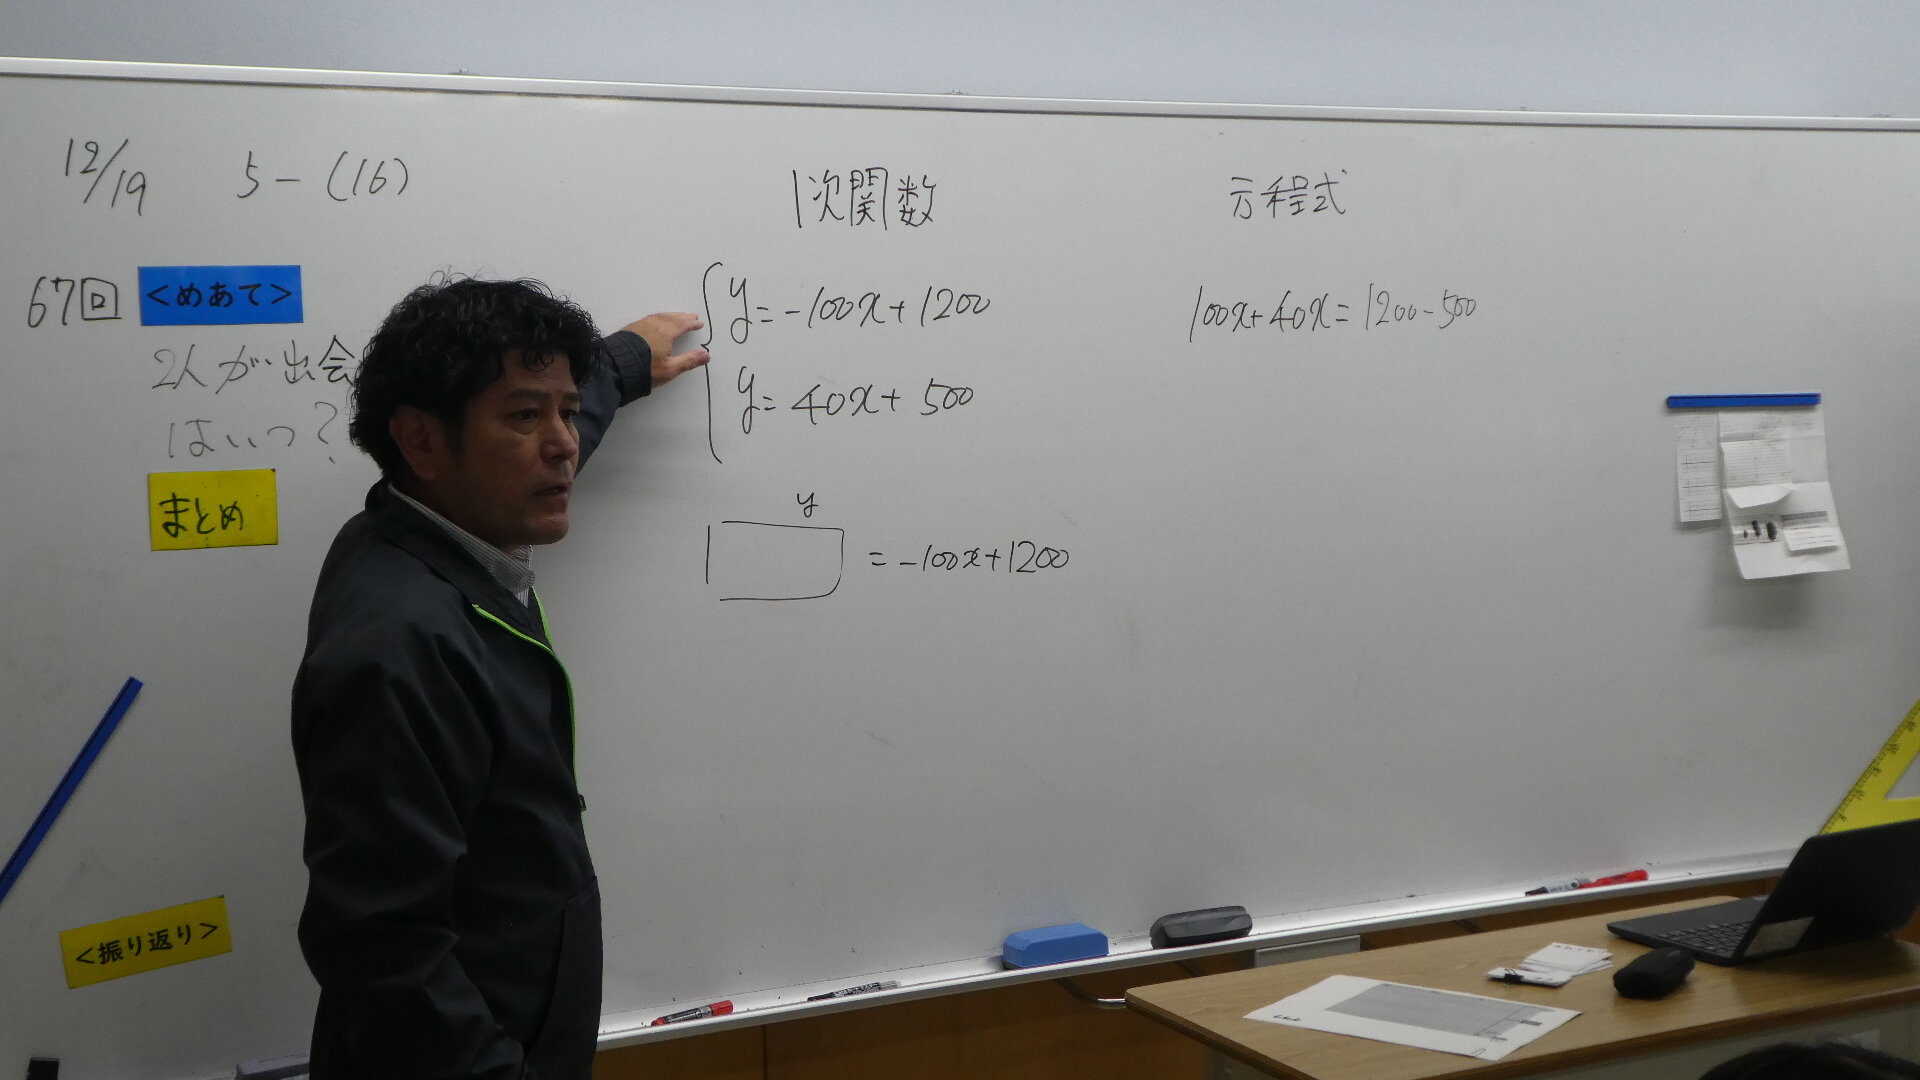 12/19 5-(16)
67回
<めあて>
2人が出会
はいつ?
まとめ
<振り返り>
1次関数
y=-100x+1200
y=40x+500
y
=-100x+1200
方程式
100x+40x=1200-500